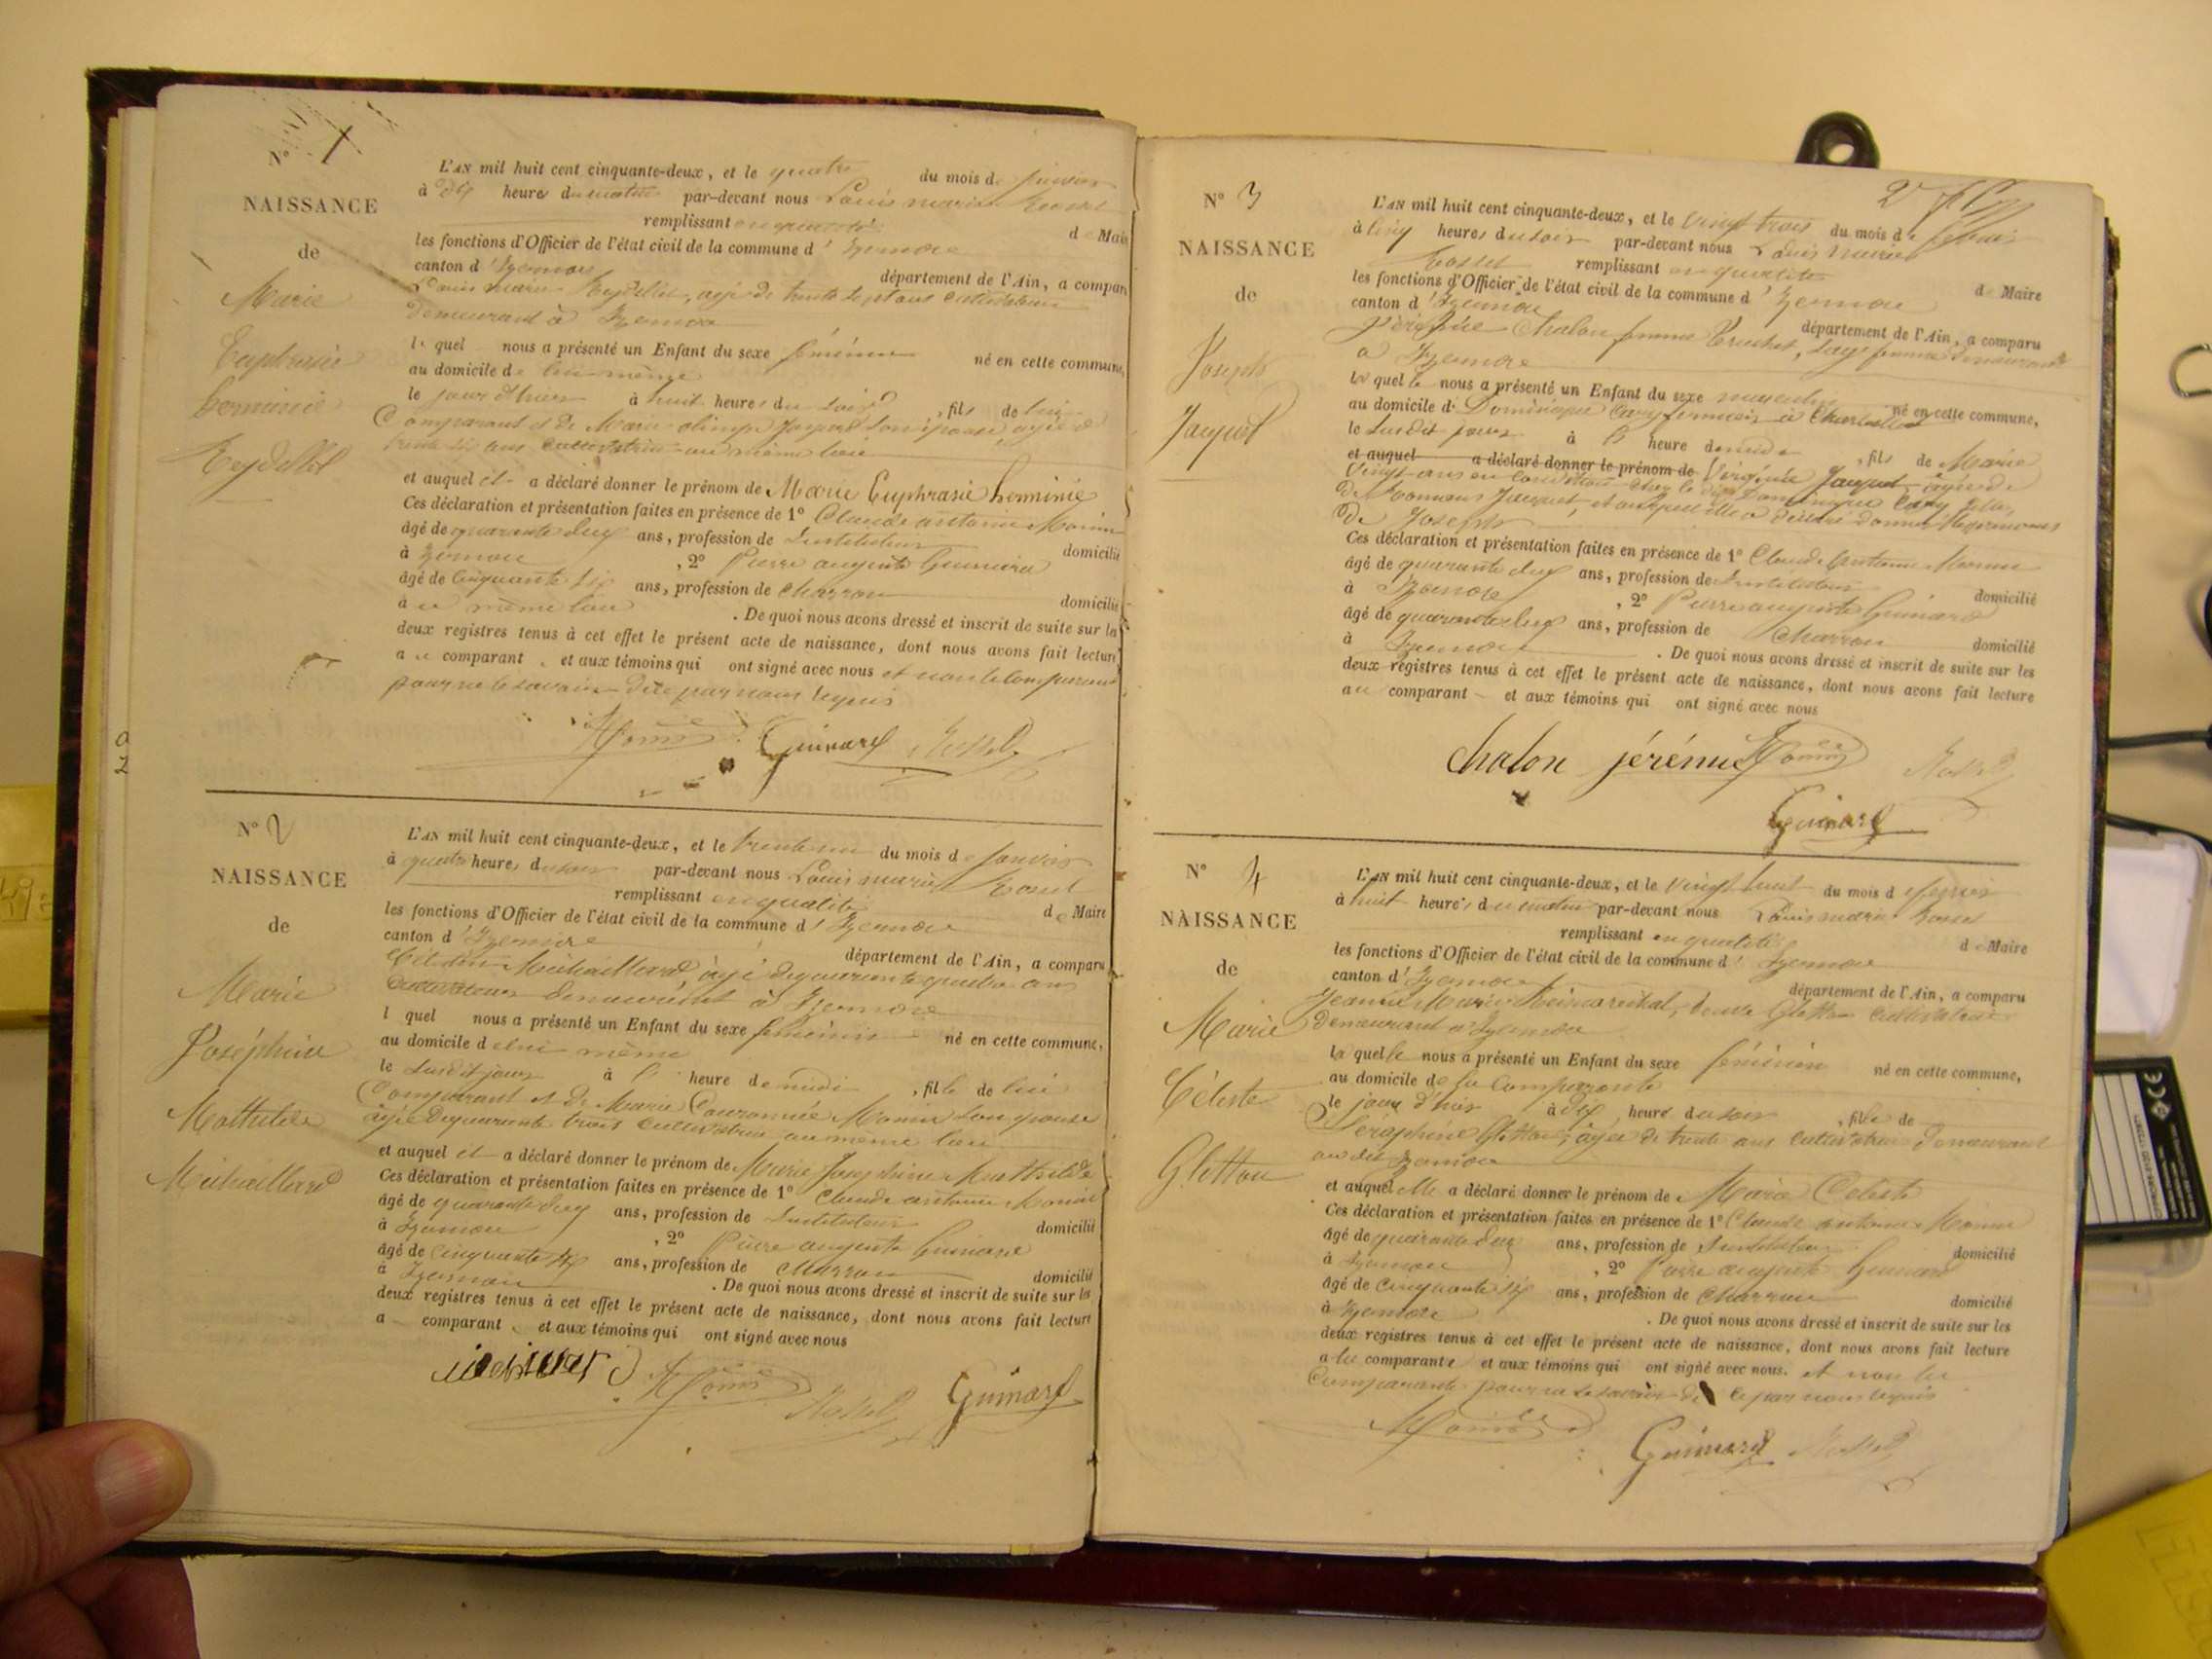 N° 1
NAISSANCE
de
Marie
Euphrasie
herminie
Reydellet
L'AN mil huit cent cinquante-deux, et le quatre du mois de janvier
à dix heures du matin par-devant nous Louis marie Rosset
remplissant en qualité de Maire
les fonctions d'Officier de l'état civil de la commune d'Izernore
canton d'Izernore département de l'Ain, a comparu
Louis marie Reydellet, agé de trente sept ans cultivateur
demeurant à Izernore
lequel nous a présenté un Enfant du sexe féminin né en cette commune,
au domicile de lui même
le jour d'hier à huit heures du soir, fils de lui
Comparant et de Marie olimpe son épouse agée de
trente six ans cultivatrice au même lieu
et auquel il a déclaré donner le prénom de Marie Euphrasie herminie
Ces déclaration et présentation faites en présence de 1° Claude antoine
âgé de quarante deux ans, profession de Instituteur domicilié
à Izernore, 2° Pierre auguste Guinard
âgé de cinquante six ans, profession de charron domicilié
au même lieu. De quoi nous avons dressé et inscrit de suite sur les
deux registres tenus à cet effet le présent acte de naissance, dont nous avons fait lecture
au comparant et aux témoins qui ont signé avec nous et non le comparant
pour ne le savoir de ce par nous requis
Guinard Rosset
N° 2
NAISSANCE
de
Marie
Joséphine
Mathilde
Michaillard
L'AN mil huit cent cinquante-deux, et le trente un du mois de janvier
à quatre heures du soir par-devant nous Louis marie Rosset
remplissant en qualité de Maire
les fonctions d'Officier de l'état civil de la commune d'Izernore
canton d'Izernore département de l'Ain, a comparu
Michaillard âgé de quarante quatre ans
cultivateur demeurant à Izernore
lquel nous a présenté un Enfant du sexe féminin né en cette commune,
au domicile de lui même
le susdit jour à heure de midi, fille de lui
Comparant et de Marie Couronnée son épouse
âgée de quarante trois cultivatrice au même lieu
et auquel il a déclaré donner le prénom de Marie Joséphine Mathilde
Ces déclaration et présentation faites en présence de 1° Claude antoine
âgé de quarante deux ans, profession de Instituteur domicilié
à Izernore, 2° Pierre auguste Guinard
âgé de cinquante six ans, profession de charron domicilié
à Izernore. De quoi nous avons dressé et inscrit de suite sur les
deux registres tenus à cet effet le présent acte de naissance, dont nous avons fait lecture
a comparant et aux témoins qui ont signé avec nous
Rosset Guinard
N° 3
NAISSANCE
de
Joseph
Jacquet
L'AN mil huit cent cinquante-deux, et le vingt trois du mois de février
à cinq heures du soir par-devant nous Louis marie
Rosset remplissant en qualité de Maire
les fonctions d'Officier de l'état civil de la commune d'Izernore
canton d'Izernore département de l'Ain, a comparu
Chalon femme, sage femme demeurant
à Izernore
laquelle nous a présenté un Enfant du sexe masculin né en cette commune,
au domicile de Dominique
le susdit jour à heure de midi, fils de Marie
et auquel a déclaré donner le prénom de Virginie Jacquet âgée de
Vingt ans en condition chez le dit Dominique
Jacquet, et auquel elle a déclaré donner les prénoms
de Joseph
Ces déclaration et présentation faites en présence de 1° Claude Antoine
âgé de quarante deux ans, profession de Instituteur domicilié
à Izernore, 2° Pierre auguste Guinard
âgé de quarante deux ans, profession de Charron domicilié
à Izernore. De quoi nous avons dressé et inscrit de suite sur les
deux registres tenus à cet effet le présent acte de naissance, dont nous avons fait lecture
au comparant et aux témoins qui ont signé avec nous
chalon jérémie Rosset
Guinard
N° 4
NAISSANCE
de
Marie
Céleste
Gletton
L'AN mil huit cent cinquante-deux, et le vingt huit du mois de février
à huit heures du matin par-devant nous Louis marie Rosset
remplissant en qualité de Maire
les fonctions d'Officier de l'état civil de la commune d'Izernore
canton d'Izernore département de l'Ain, a comparu
Jeanne Marie, veuve Gletton cultivatrice
demeurant à Izernore
laquelle nous a présenté un Enfant du sexe féminin né en cette commune,
au domicile de la Comparante
le jour d'hier à dix heure du soir, fille de
Séraphine Gletton, âgée de trente ans cultivatrice demeurant
au dit Izernore
et auquel elle a déclaré donner le prénom de Marie Céleste
Ces déclaration et présentation faites en présence de 1° Claude antoine
âgé de quarante deux ans, profession de Instituteur domicilié
à Izernore, 2° Pierre auguste Guinard
âgé de cinquante six ans, profession de charron domicilié
à Izernore. De quoi nous avons dressé et inscrit de suite sur les
deux registres tenus à cet effet le présent acte de naissance, dont nous avons fait lecture
a la comparante et aux témoins qui ont signé avec nous. et non la
Comparante pour ne le savoir de ce par nous requis
Guinard Rosset